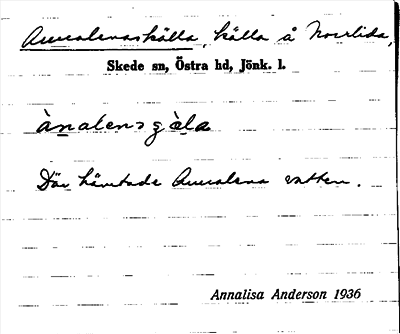 Annalenaskälla, källa å Norrlida,
Skede sn, Östra hd, Jönk. l.
ànalensgè̀la
Där hämtade Annalena vatten.
Annalisa Anderson 1936